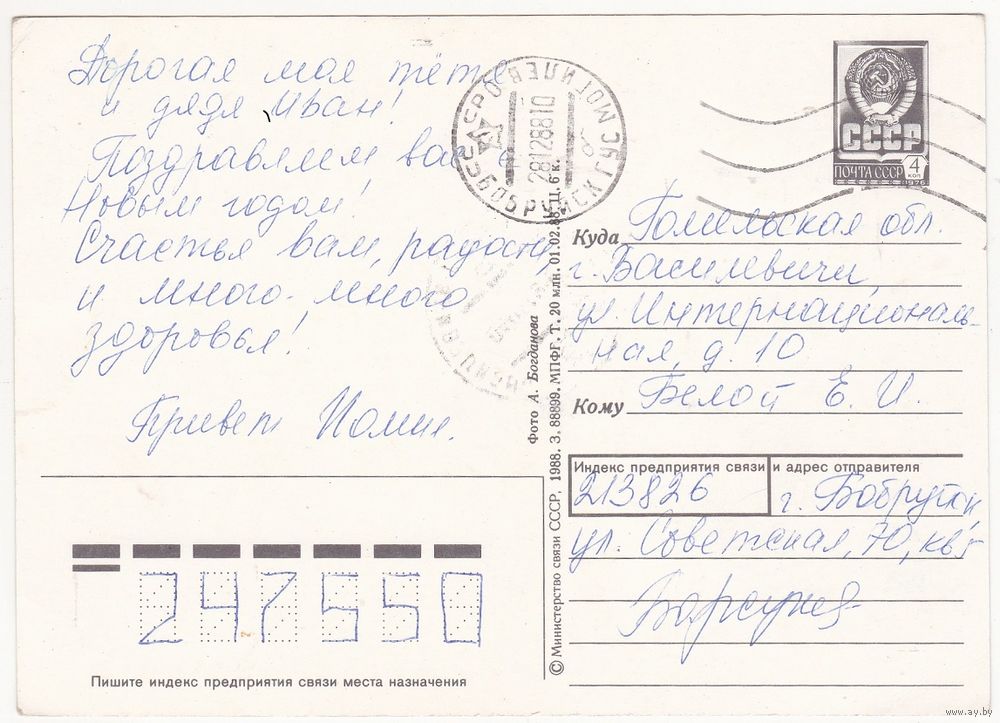 Дорогая моя тётя
и дядя Иван!
Поздравляем вас с
Новым годом!
Счастья вам, радости,
и много-много
здоровья!
Привет
СССР
ПОЧТА СССР
4 коп
1976
28128810
БОБРУЙСК
Куда Гомельская обл.
г. Василевичи,
ул. Интернациональ-
ная, д. 10
Кому Белой Е. И.
Индекс предприятия связи и адрес отправителя
213826 г. Бобруйск
ул. Советская, 70, кв 5
© Министерство связи СССР, 1988. З. 88899. МПФГ. Т. 20 млн. 01.02.88. Ц. 6 к.
Фото А. Богданова
247550
Пишите индекс предприятия связи места назначения
www.ay.by